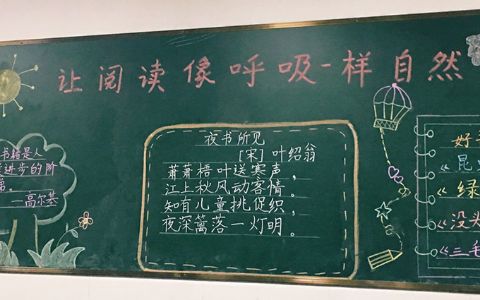 让阅读像呼吸一样自然
书籍是人
进步的阶
—高尔基
夜书所见
[宋]叶绍翁
萧萧梧叶送寒声，
江上秋风动客情。
知有儿童挑促织，
夜深篱落一灯明。
好
《昆虫
《绿
《没头
《三毛